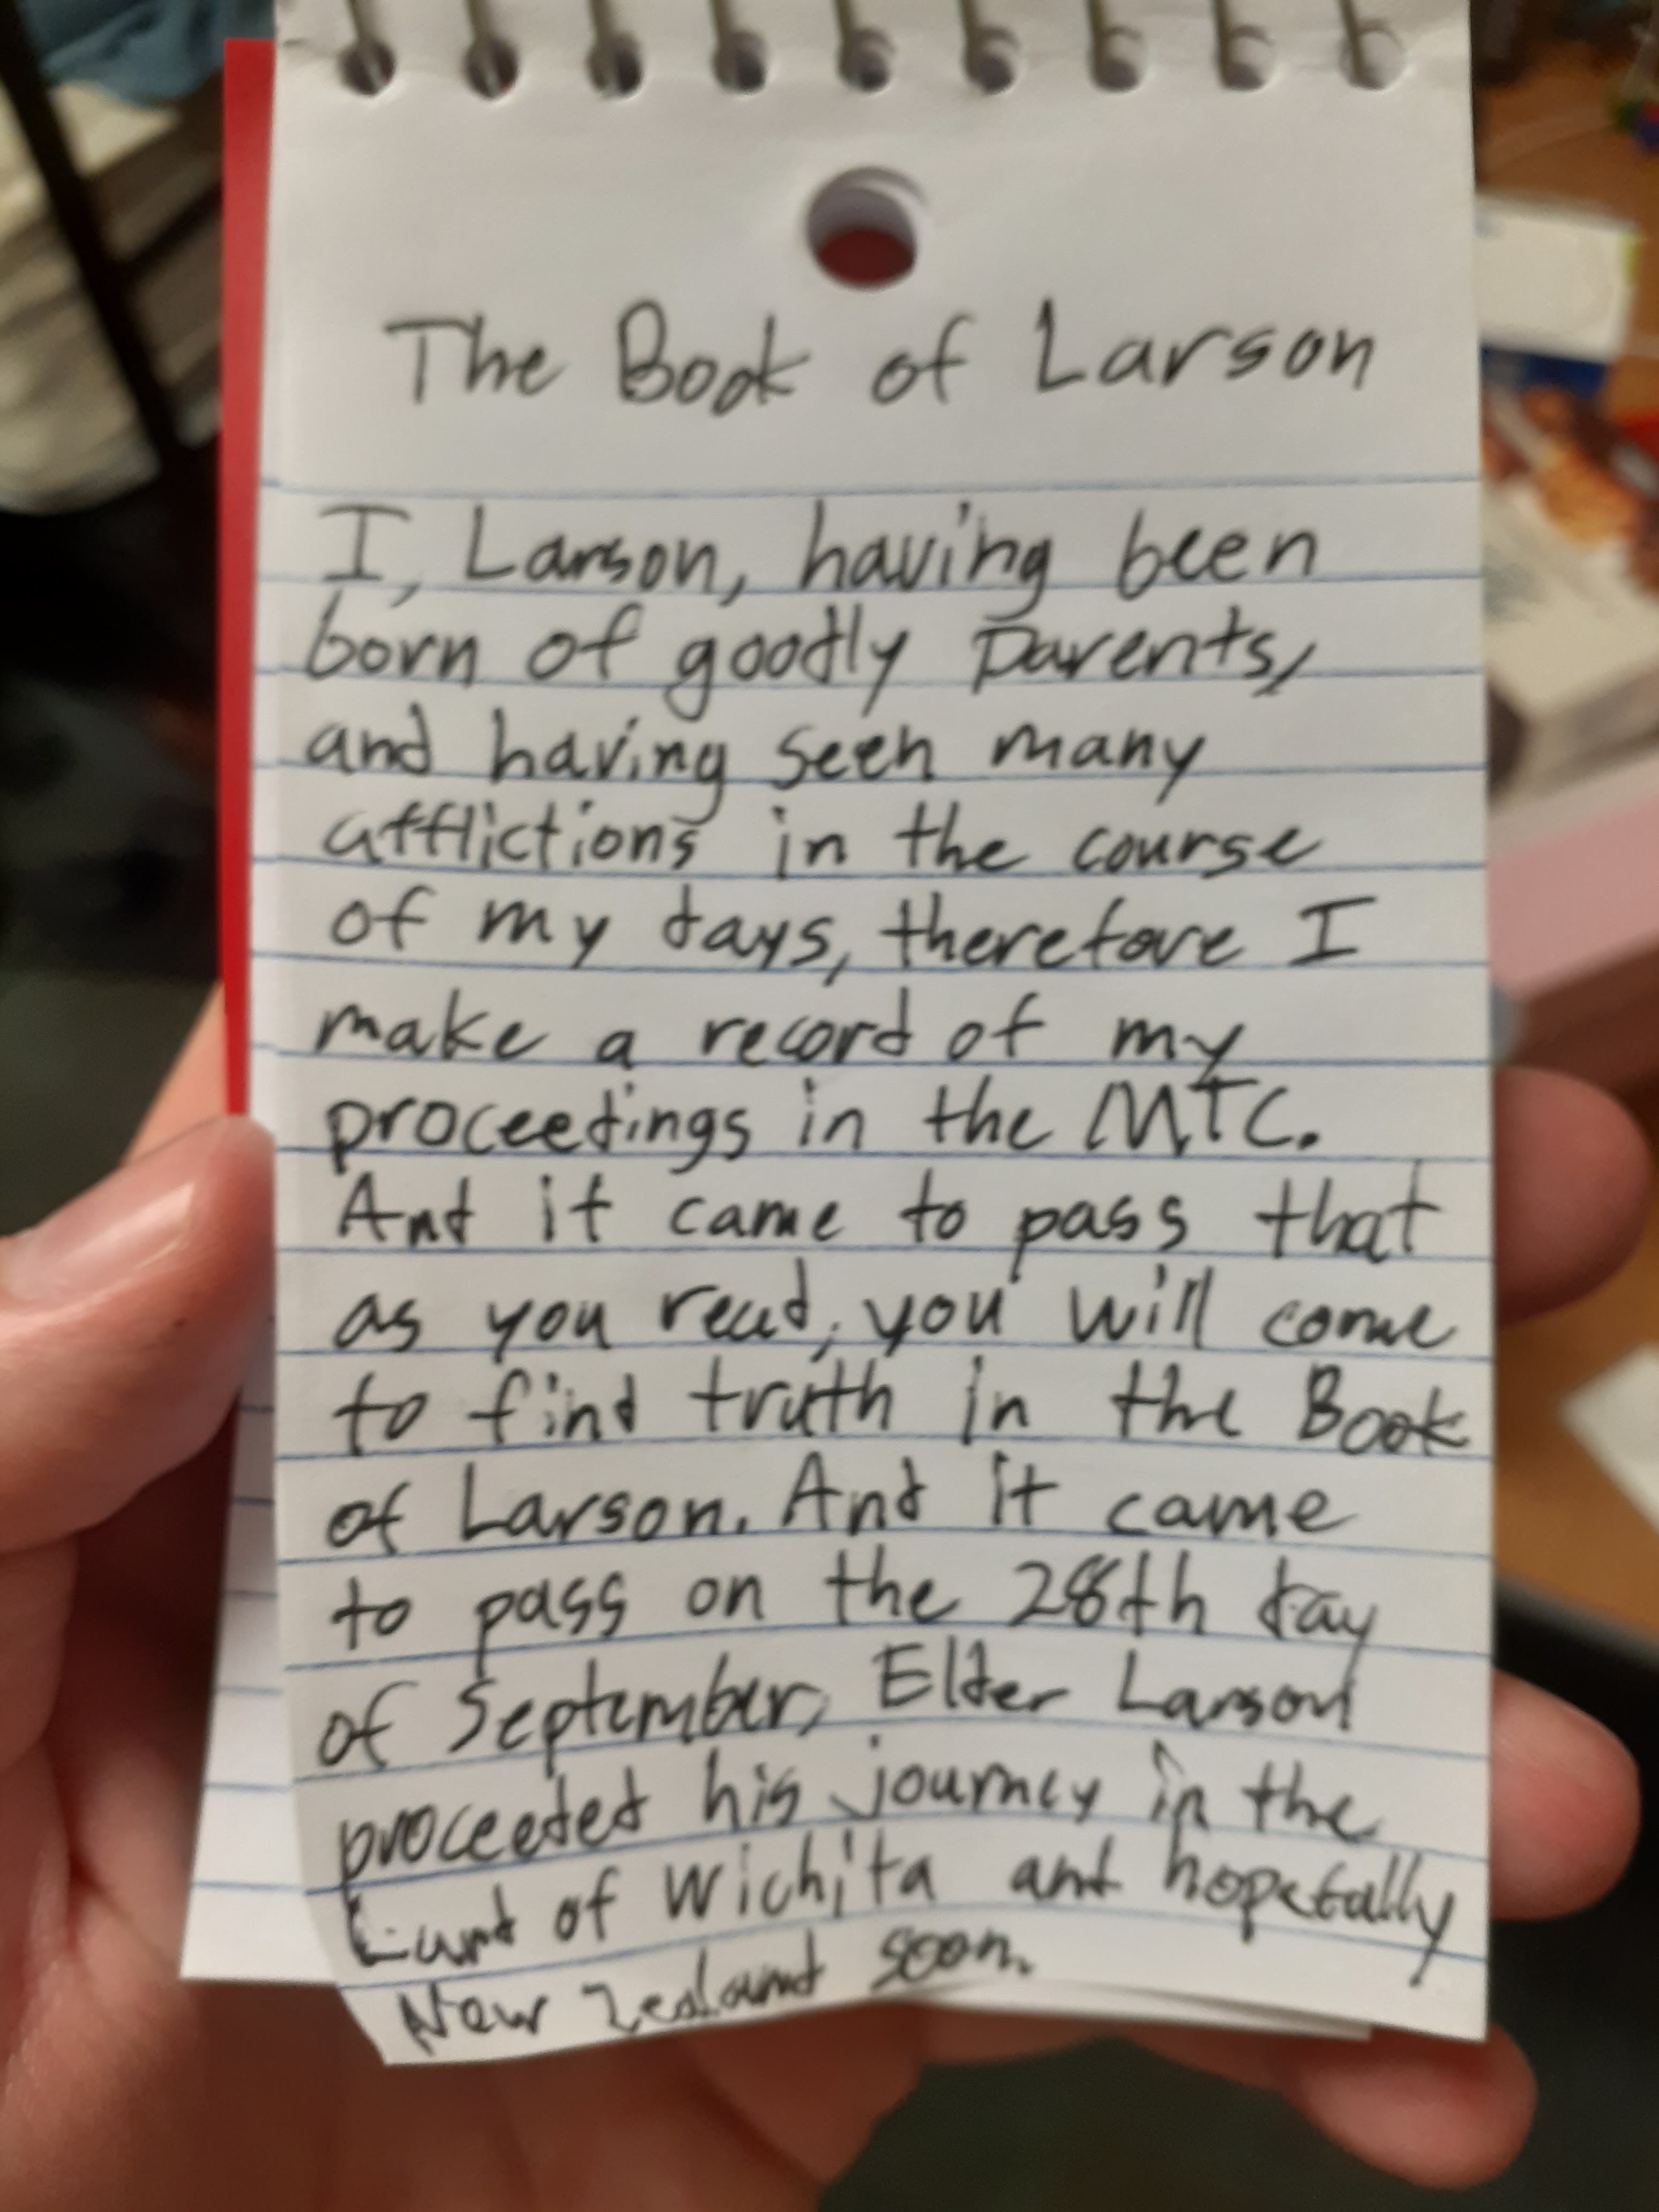 The Book of Larson
I, Larson, having been
born of goodly parents,
and having seen many
afflictions in the course
of my days, therefore I
make a record of my
proceedings in the MTC.
And it came to pass that
as you read, you will come
to find truth in the Book
of Larson. And it came
to pass on the 28th day
of September, Elder Larson
proceeded his journey in the
Land of Wichita and hopefully
New Zealand soon.